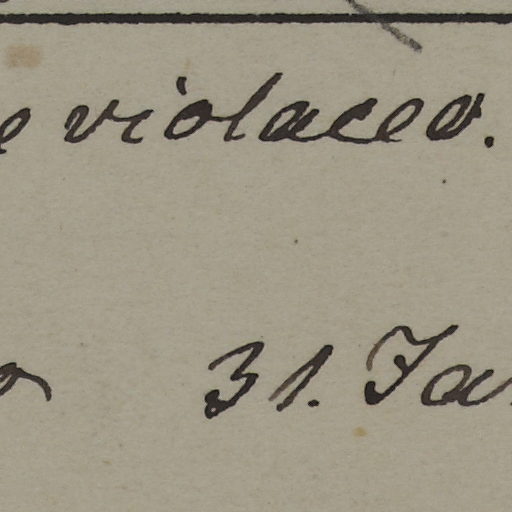 violaceo.
31. Ja